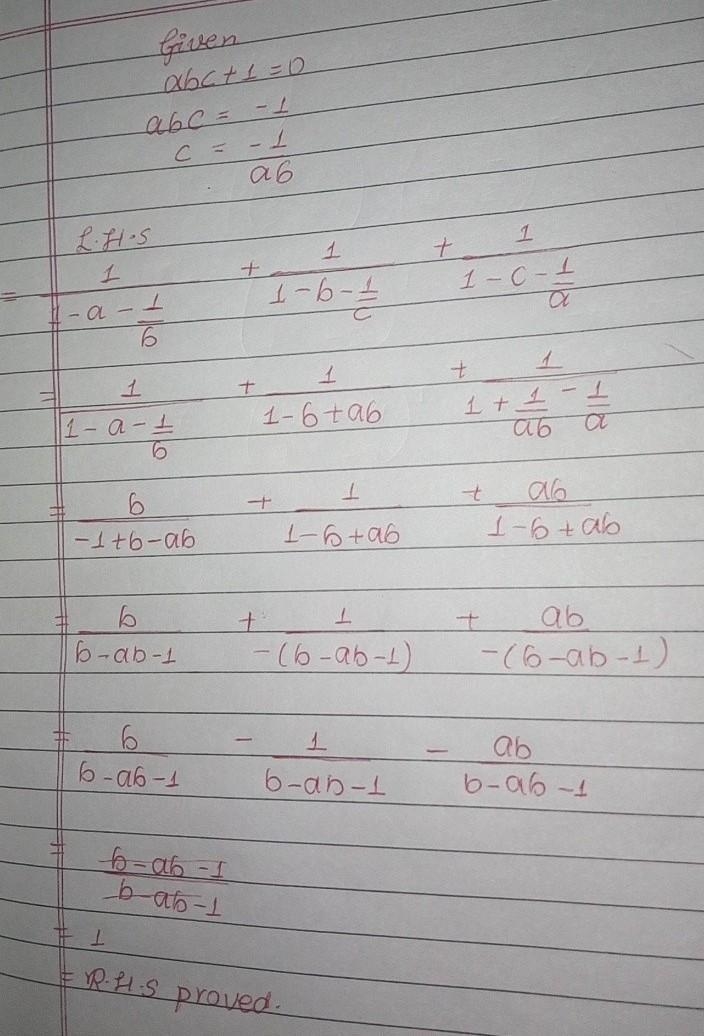 Given
abc + 1 = 0
abc = -1
c = -1/ab
L.H.S
= 1/(1 - a - 1/b) + 1/(1 - b - 1/c) + 1/(1 - c - 1/a)
= 1/(1 - a - 1/b) + 1/(1 - b + ab) + 1/(1 + 1/ab - 1/a)
= b/(-1 + b - ab) + 1/(1 - b + ab) + ab/(1 - b + ab)
= b/(b - ab - 1) + 1/(-(b - ab - 1)) + ab/(-(b - ab - 1))
= b/(b - ab - 1) - 1/(b - ab - 1) - ab/(b - ab - 1)
= (b - ab - 1)/(b - ab - 1)
= 1
= R.H.S proved.